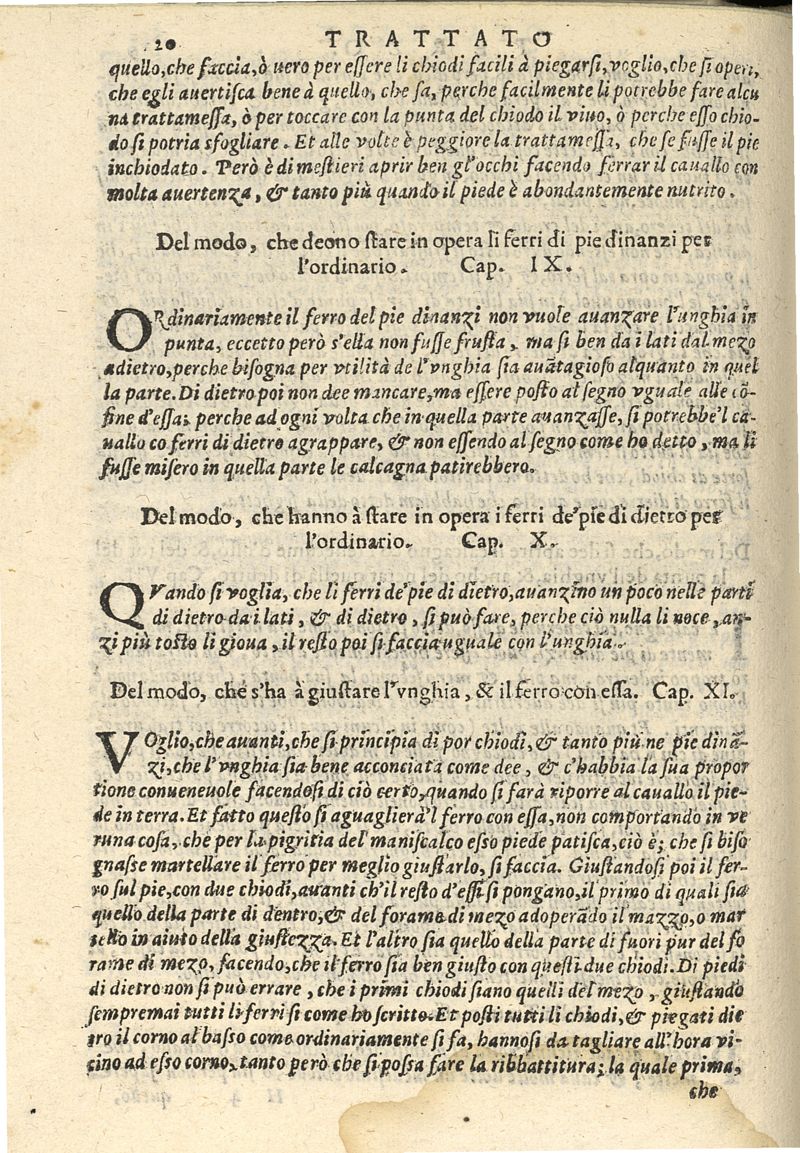 20 TRATTATO
quello, che faccia, ò uero per essere li chiodi facili à piegarsi, voglio, che si operi,
che egli auertisca bene à quello, che fa, perche facilmente li potrebbe fare alcu
na trattamessa, ò per toccare con la punta del chiodo il viuo, ò perche esso chio-
do si potria sfogliare. Et alle volte è peggiore la trattamessa, che se fusse il pie
inchiodato. Però è di mestieri aprir ben gl'occhi facendo ferrar il cauallo con
molta auertenza, & tanto più quando il piede è abondantemente nutrito.
Del modo, che deono stare in opera li ferri di pie dinanzi per
l'ordinario. Cap. IX.
ORdinariamente il ferro del pie dinanzi non vuole auanzare l'unghia in
punta, eccetto però s'ella non fusse frusta, ma si ben da i lati dal mezo
adietro, perche bisogna per vtilità de l'vnghia sia auãtagioso alquanto in quel
la parte. Di dietro poi non dee mancare, ma essere posto al segno vguale alle cõ-
fine d'essa; perche ad ogni volta che in quella parte auanzasse, si potrebbe'l ca-
uallo co ferri di dietro agrappare, & non essendo al segno come ho detto, ma li
fusse misero in quella parte le calcagna patirebbero.
Del modo, che hanno à stare in opera i ferri de' pie di dietro per
l'ordinario. Cap. X.
QVando si voglia, che li ferri de' pie di dietro, auanzino un poco nelle parti
di dietro da i lati, & di dietro, si può fare, perche ciò nulla li noce, an-
zi più tosto li gioua, il resto poi si faccia uguale con l'unghia.
Del modo, che s'ha à giustare l'vnghia, & il ferro con essa. Cap. XI.
VOglio, che auanti, che si principia di por chiodi, & tanto più ne pie dinã-
zi, che l'vnghia sia bene acconciata come dee, & c'habbia la sua propor
tione conueneuole facendosi di ciò certo, quando si farà riporre al cauallo il pie-
de in terra. Et fatto questo si aguaglierà'l ferro con essa, non comportando in ve
runa cosa, che per la pigritia del maniscalco esso piede patisca, ciò è; che si biso
gnasse martellare il ferro per meglio giustarlo, si faccia. Giustandosi poi il fer-
ro sul pie, con due chiodi, auanti ch'il resto d'essi si pongano, il primo di quali sia
quello della parte di dentro, & del forame di mezo adoperãdo il mazzo, o mar
tello in aiuto della giustezza. Et l'altro sia quello della parte di fuori pur del fo
rame di mezo, facendo, che il ferro sia ben giusto con questi due chiodi. Di piedi
di dietro non si può errare, che i primi chiodi siano quelli del mezo, giustando
sempremai tutti li ferri si come ho scritto. Et posti tutti li chiodi, & piegati die
tro il corno al basso come ordinariamente si fa, hannosi da tagliare all'hora vi
cino ad esso corno, tanto però che si possa fare la ribbattitura; la quale prima,
che